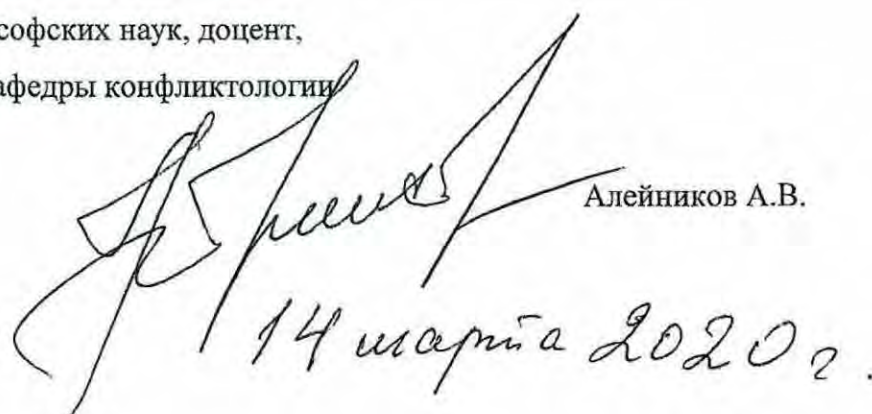 софских наук, доцент,
афедры конфликтологии
Алейников А.В.
14 марта 2020 г.